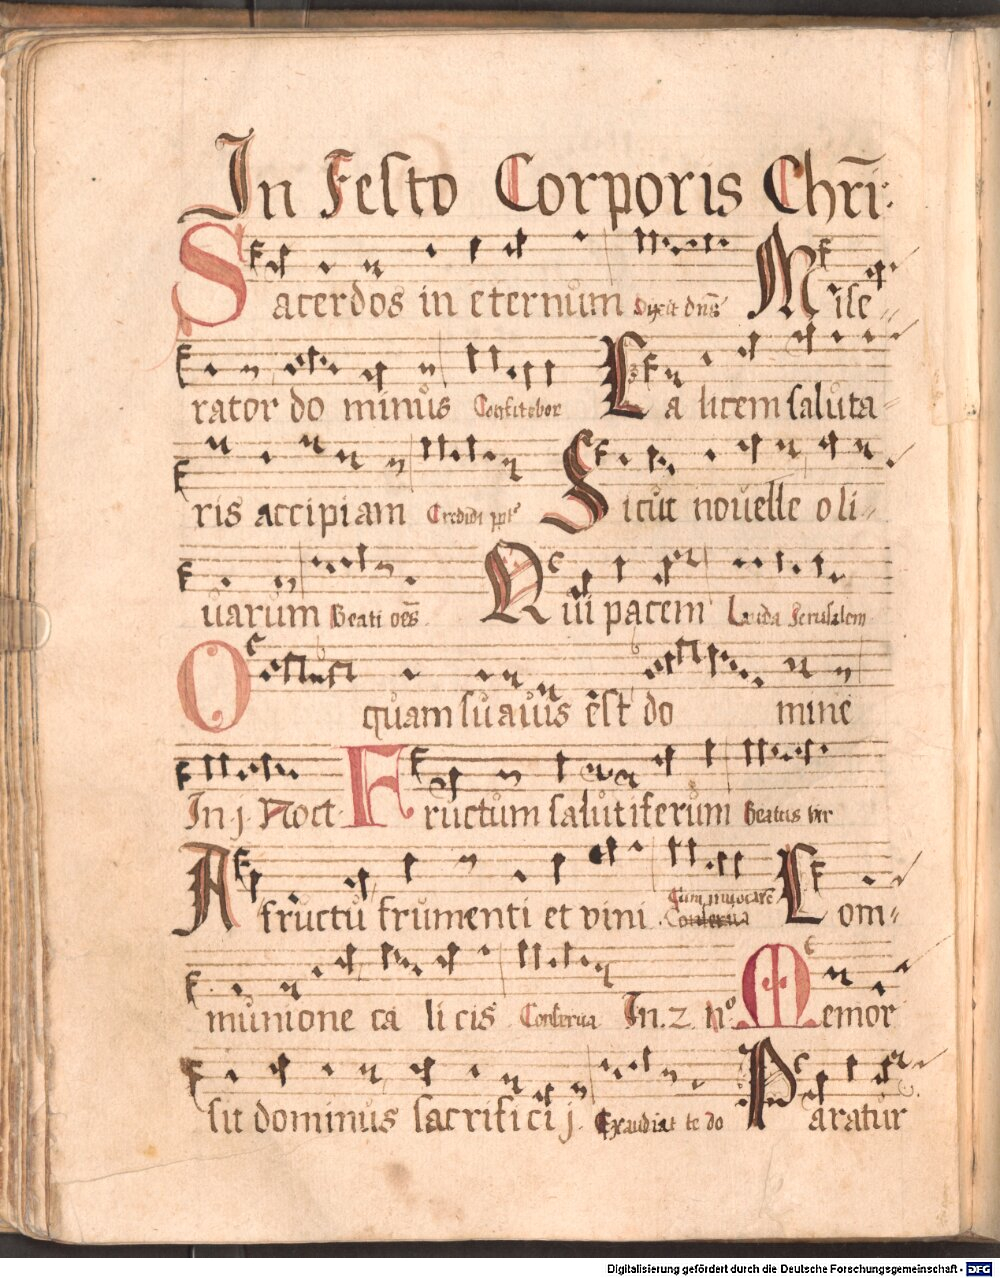 In Festo Corporis Chri̅
Sacerdos in eternum Dixit dn̅s Mise
rator dominus Confitebor Calicem saluta
ris accipiam Credidi ppt̅ Sicut nouelle oli
uarum Beati oe̅s Qui pacem Lauda Jerusalem
O quam suauis est domine
In j. Noct. Fructum salutiferum Beatus vir
A fructu frumenti et vini Cum inuocare̅ Conserua Com
munione calicis Conserua In. 2. no Memor
sit dominus sacrificij Exaudiat te do Paratur
Digitalisierung gefördert durch die Deutsche Forschungsgemeinschaft - DFG